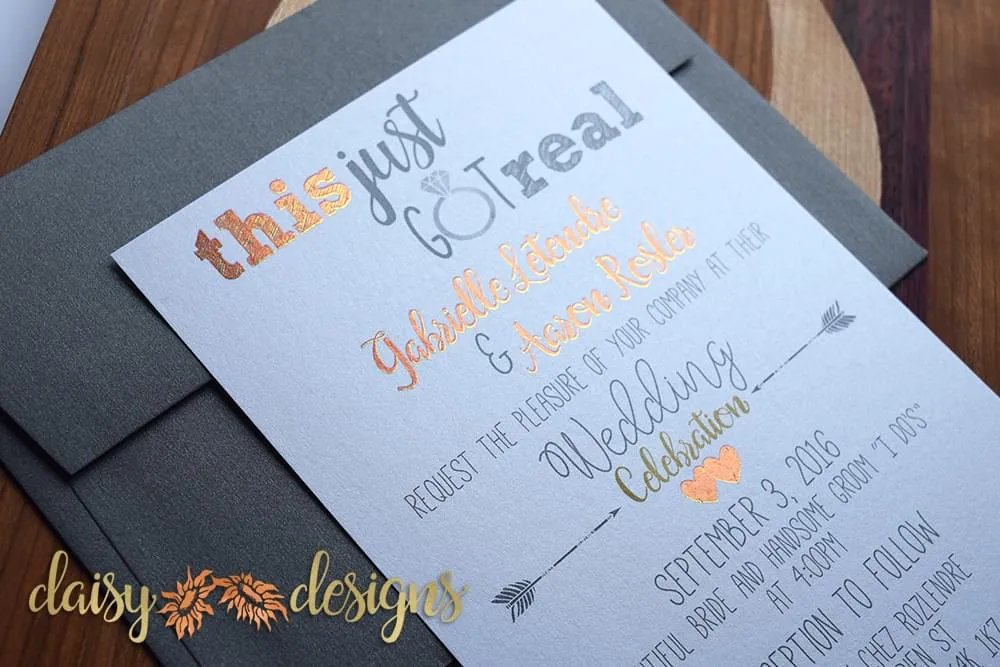 this just GOT real
Gabrielle Letendre
& Aaron Rosler
REQUEST THE PLEASURE OF YOUR COMPANY AT THEIR
Wedding
Celebration
SEPTEMBER 3, 2016
BRIDE AND HANDSOME GROOM "I DO'S"
AT 4:00PM
TO FOLLOW
CHEZ ROZLENDRE
ST
daisy designs